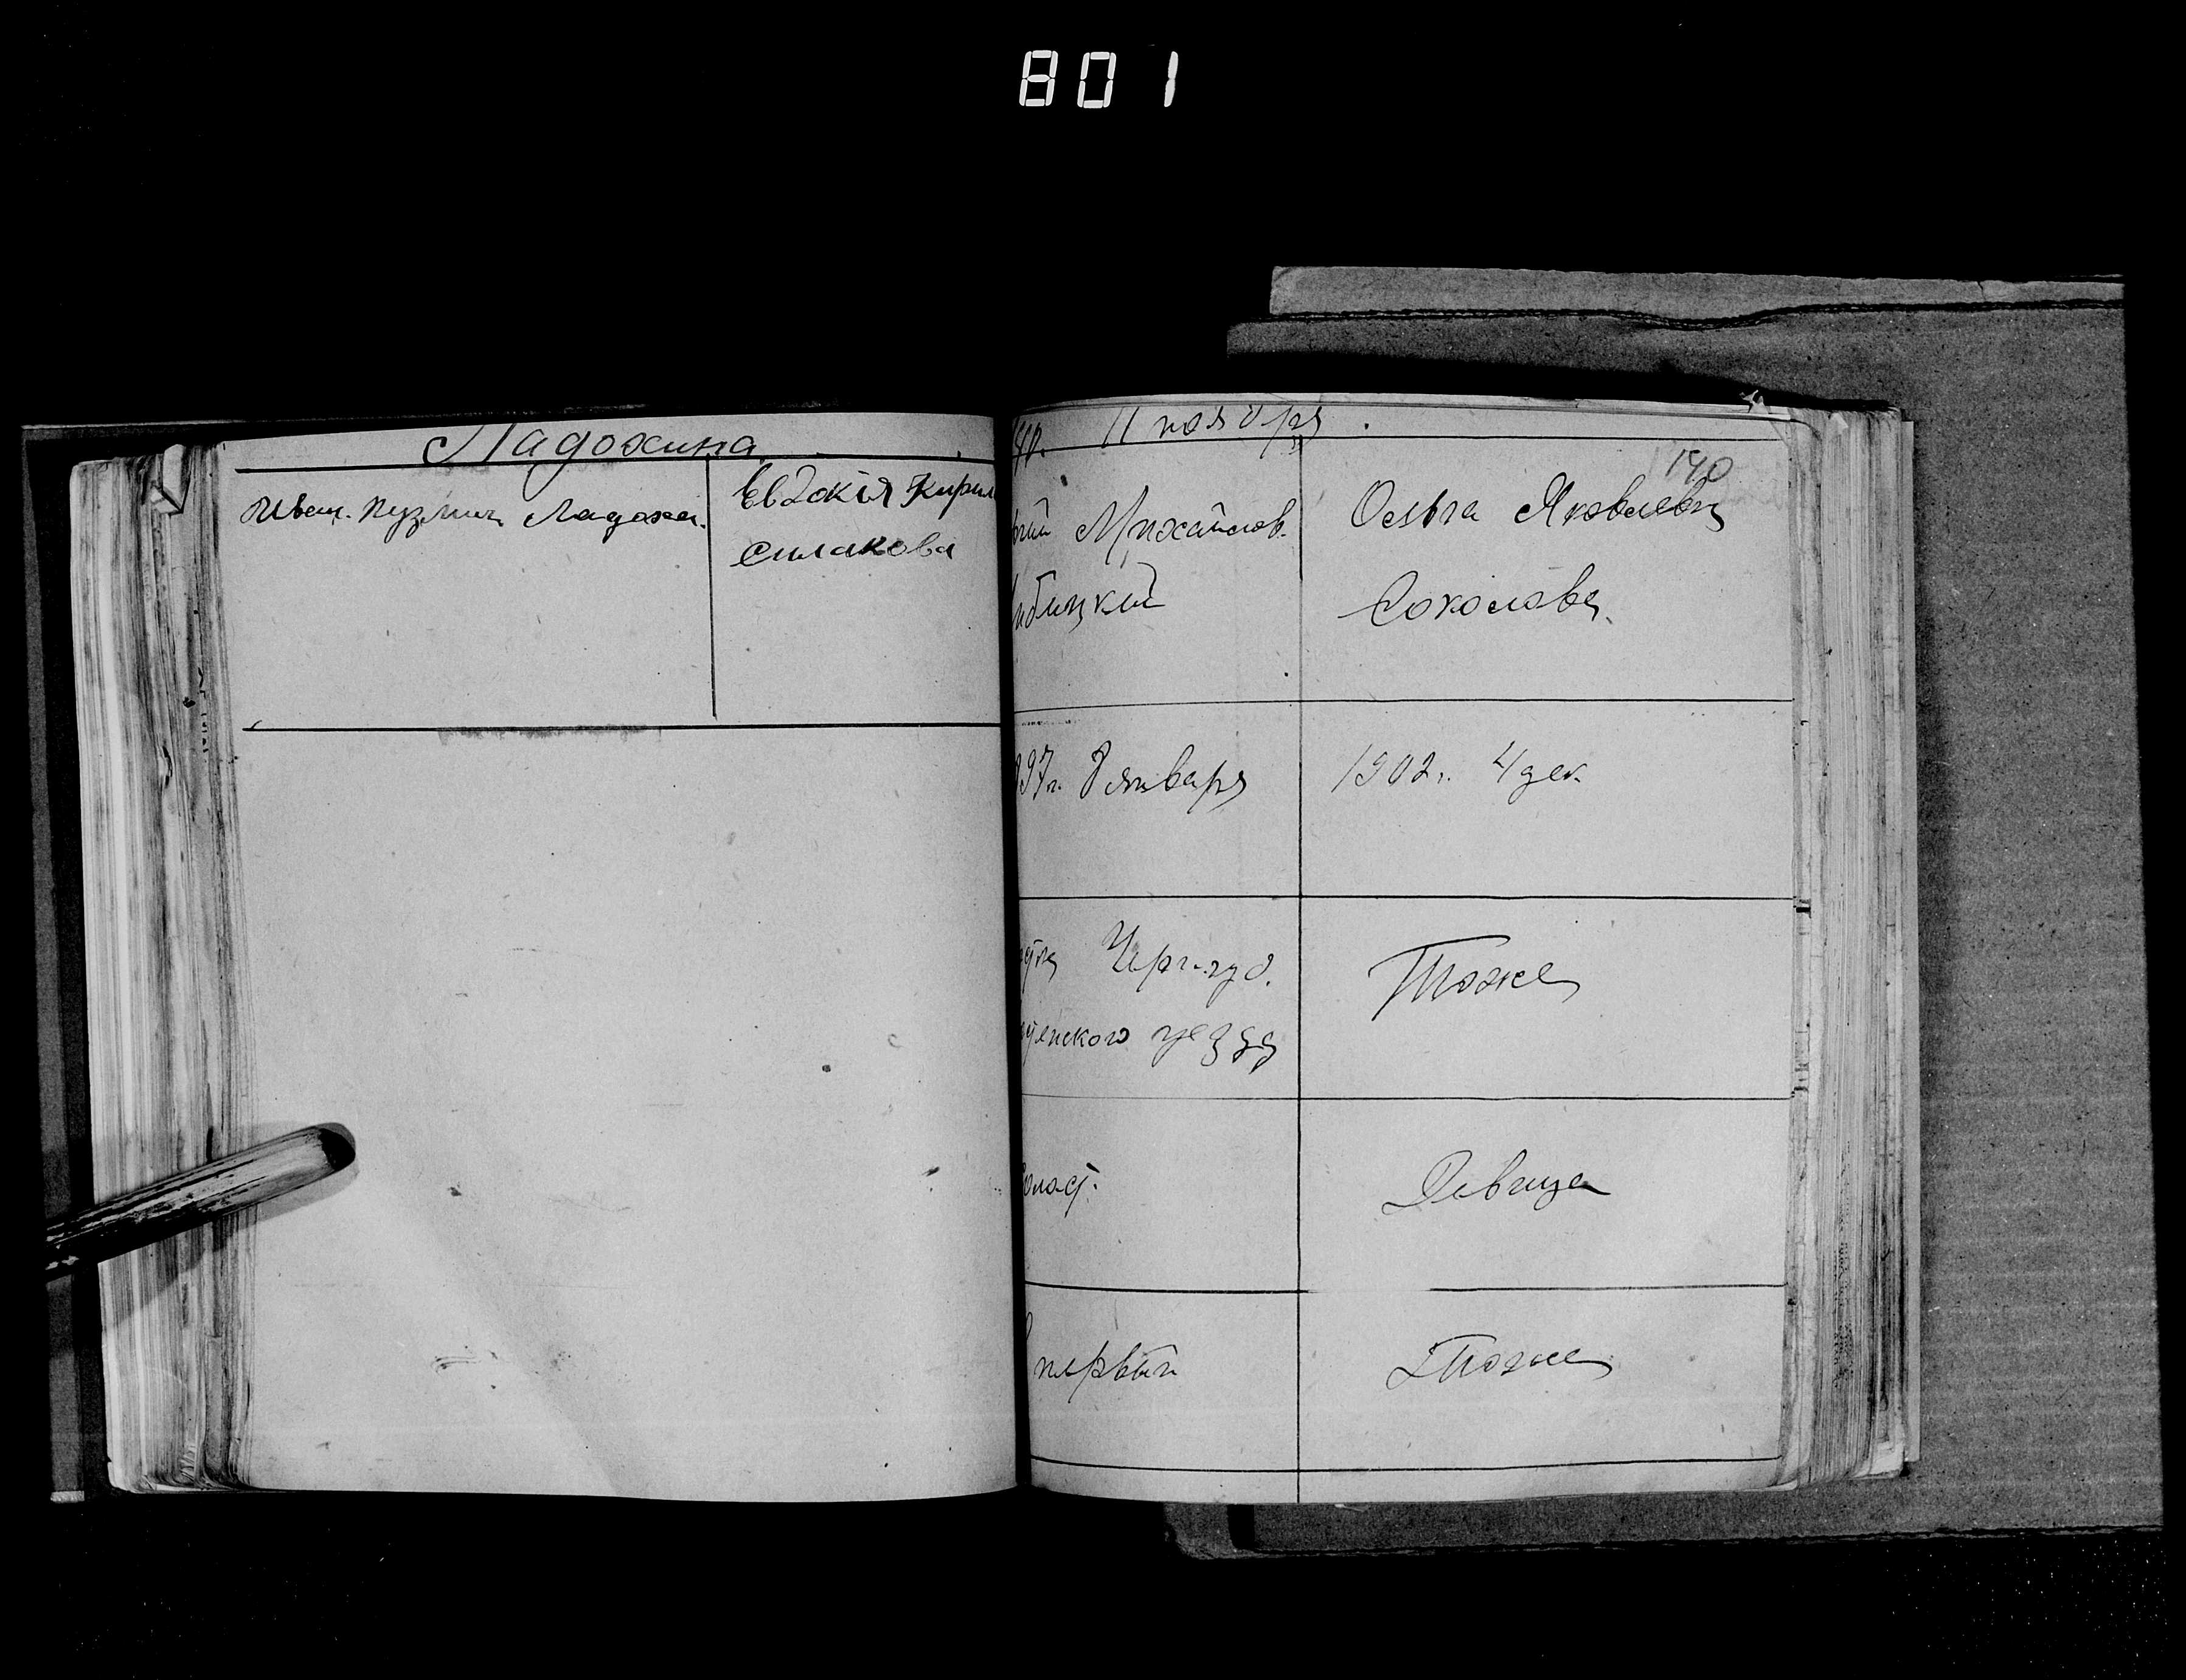 801
Ладохина
Иван. Кузмич Ладохи.
Евдокія Кирил
Силакова
11 ноября.
140
Михайлов.
Ольга Яковлевна
Соколова.
97г. 8 января
1902г. 4 дек.
Черн. губ.
уезда
Тоже
холост.
Девица
первый
Тоже